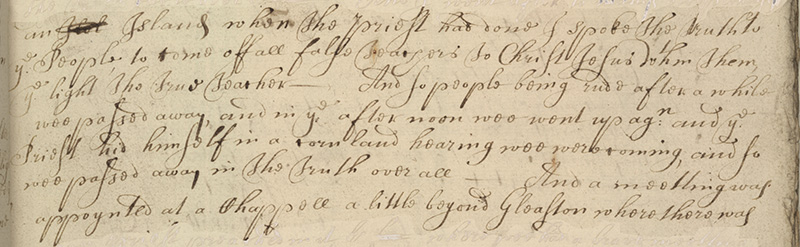 an Island when the priest had done I spoke the truth to
ye People, to come off all false Teachers to Christ Jesus wthin them,
ye light the True Teacher — And so people being rude after a while
wee passed away, and in ye after noon wee went up agn: and ye
Priest hid himself in a cornland hearing wee were coming, and so
wee passed away in the Truth over all — And a meetting was
appoynted at a Chappell a little beyond Gleaston where there was